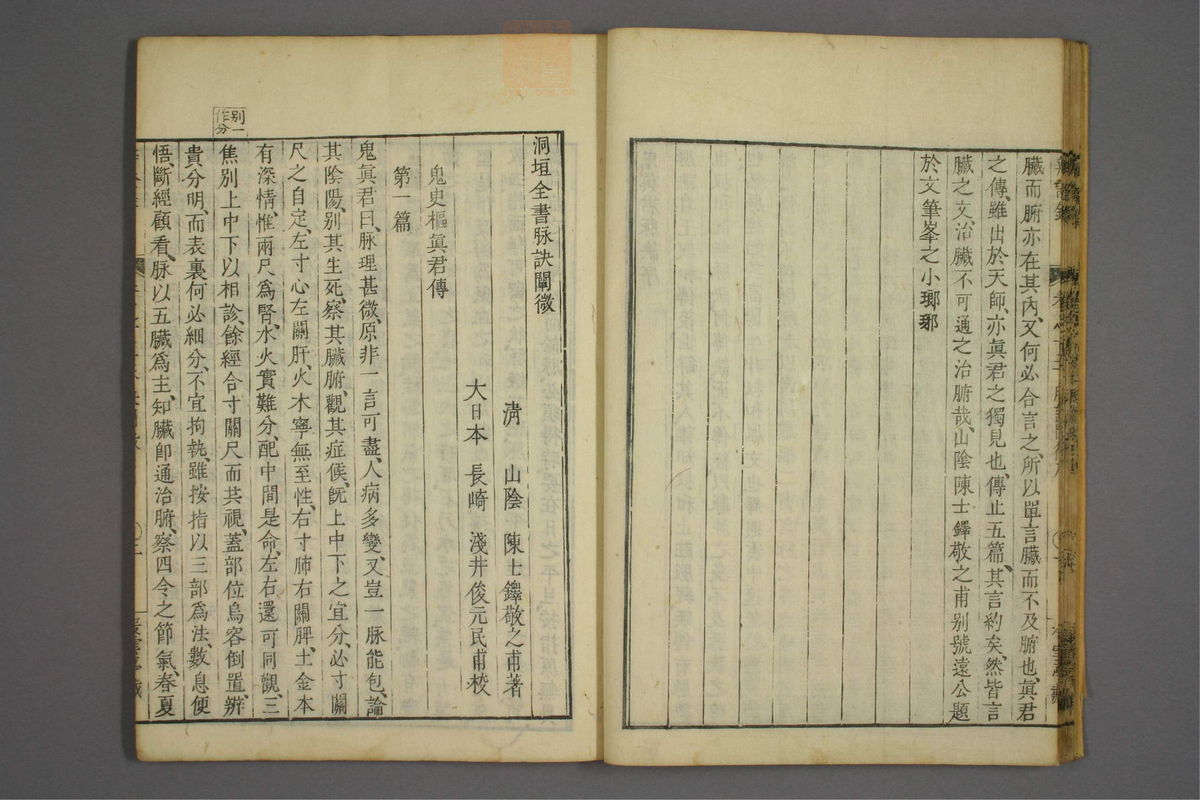 臟而腑亦在其內、又何必合言之、所以單言臟而不及腑也、眞君
之傳、雖出於天師、亦眞君之獨見也、傳止五篇、其言約矣、然皆言
臟之文、治臟不可通之治腑哉、山陰陳士鐸敬之甫别號遠公題
於文筆峯之小瑯琊
洞垣全書脉訣闡微
清 山陰 陳士鐸敬之甫著
大日本 長崎 淺井俊元民甫校
鬼史樞眞君傳
第一篇
鬼眞君曰、脉理甚微、原非一言可盡、人病多變、又豈一脉能包、論
其陰陽、别其生死、察其臟腑、觀其症候、旣上中下之宜分、必寸關
尺之自定、左寸心左關肝、火木寧無至性、右寸肺右關脾、土金本
有深情、惟兩尺爲腎、水火實難分、配中間是命、左右還可同觀、三
焦别上中下以相診、餘經合寸關尺而共視、蓋部位烏容倒置、辨
貴分明、而表裏何必細分、不宜拘執、雖按指以三部爲法、數息便
悟、斷經顧看、脉以五臟爲主、知臟卽通治腑、察四令之節氣、春夏
别一
作分